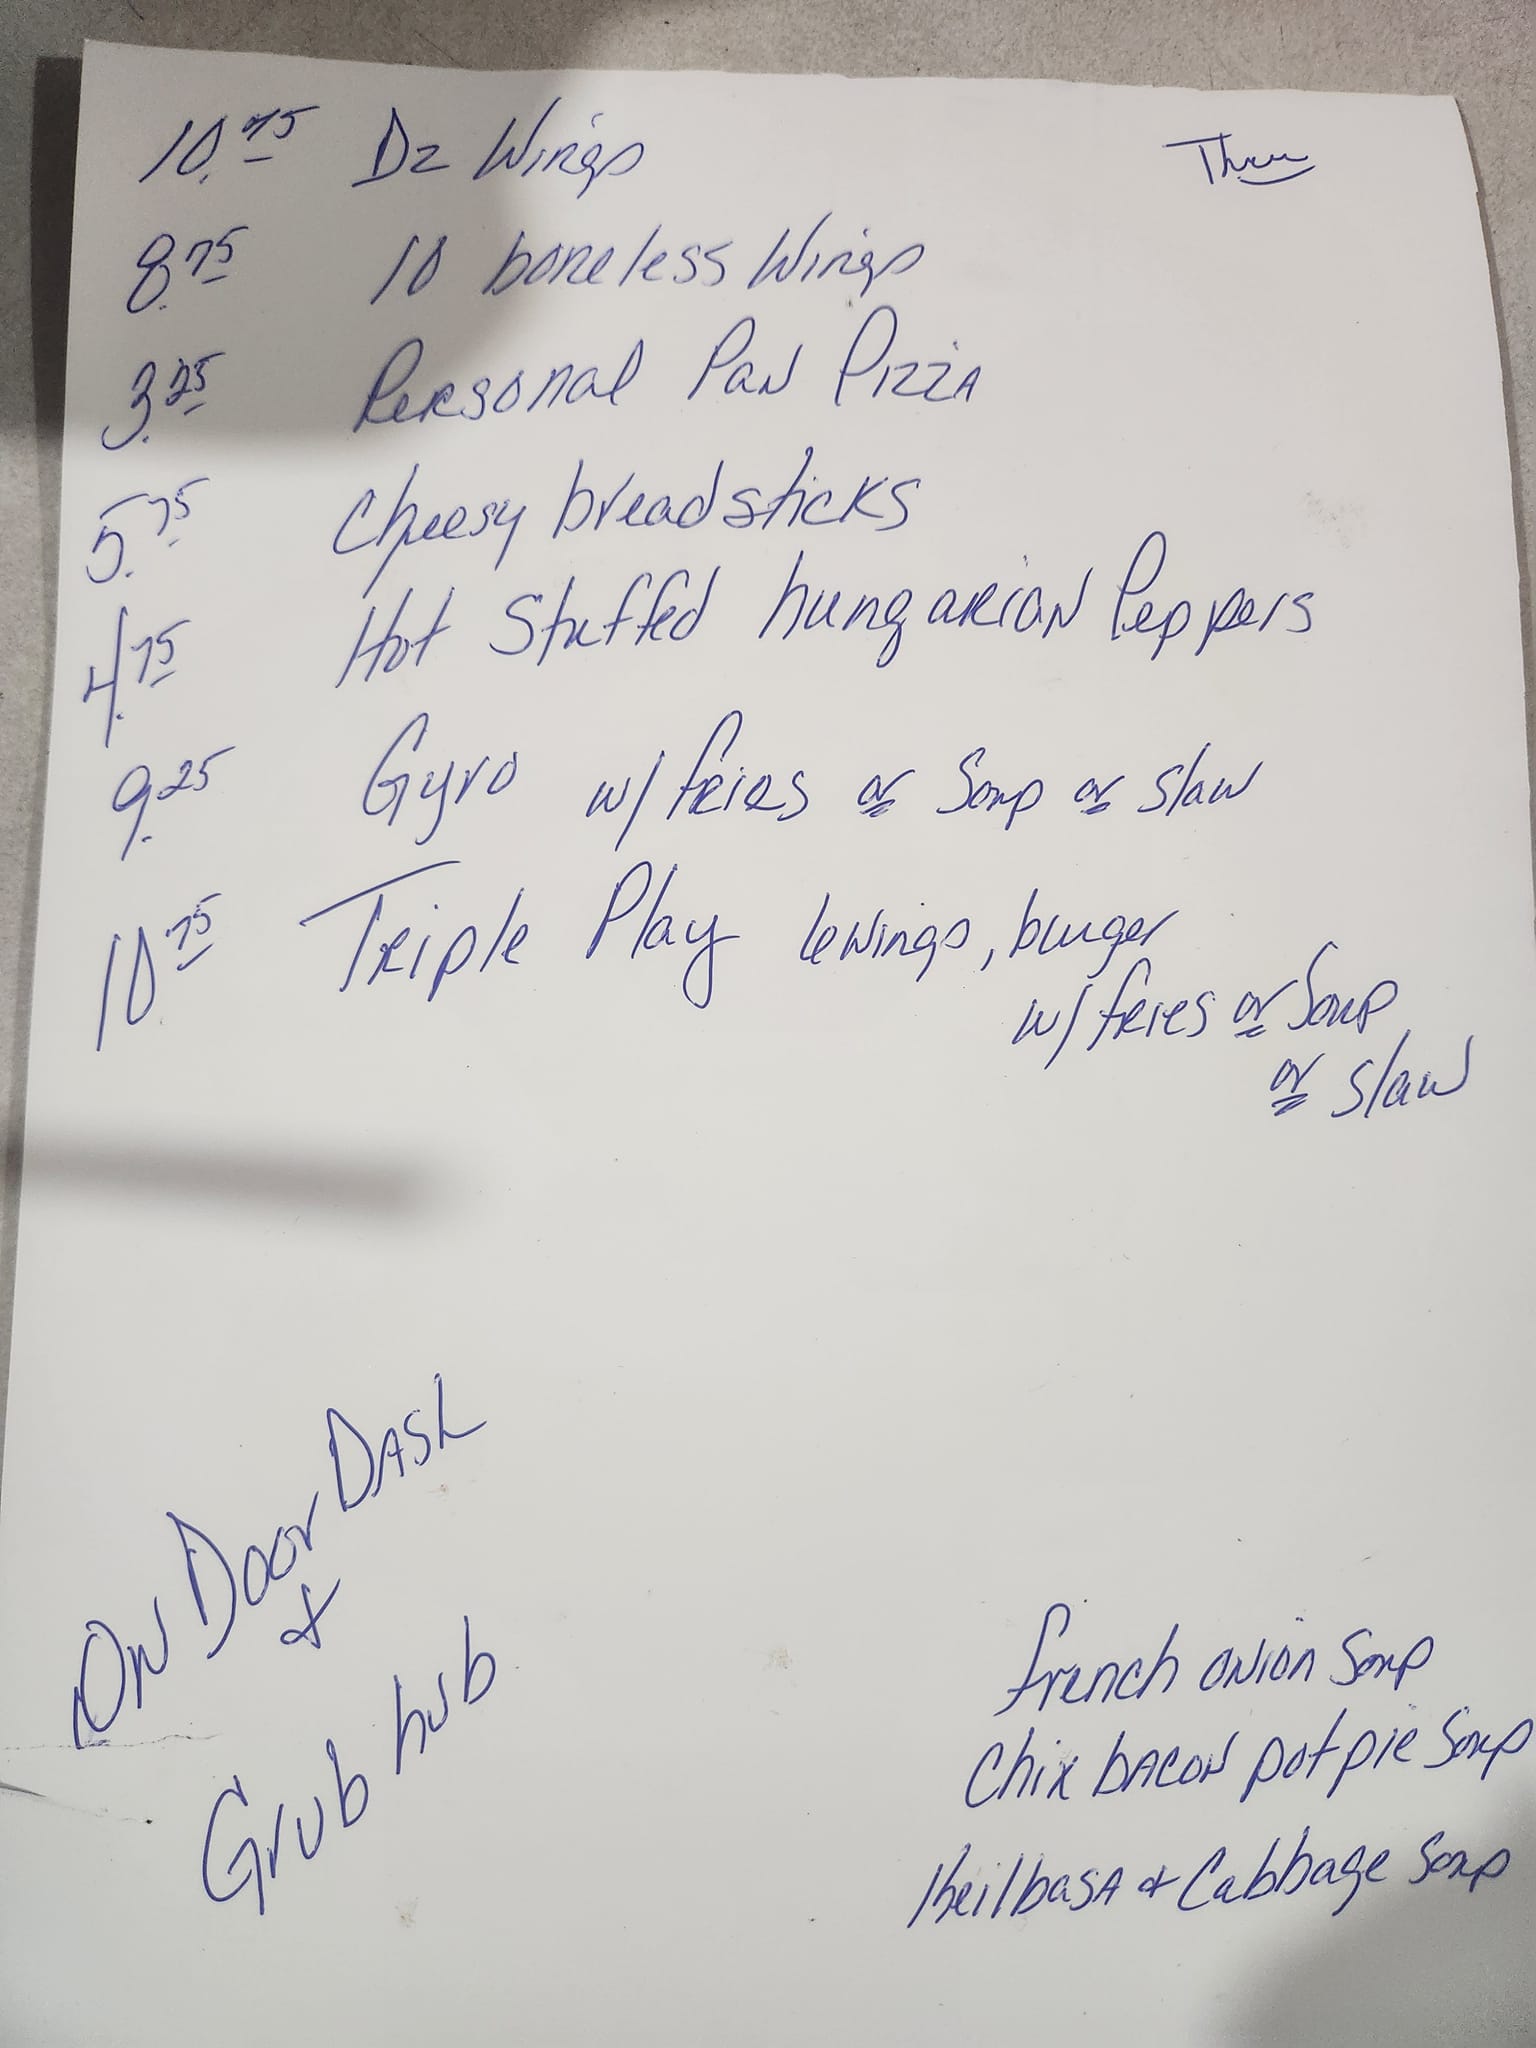 10.75 Dz Wings
Thur
8.75 10 boneless Wings
3.25 Personal Pan Pizza
5.75 Cheesy breadsticks
4.75 Hot Stuffed hungarian Peppers
9.25 Gyro w/ fries or Soup or slaw
10.75 Triple Play 6 wings, burger
w/ fries or Soup
or slaw
On Door Dash
&
Grub hub
french onion soup
Chix bacon pot pie soup
Keilbasa & Cabbage soup